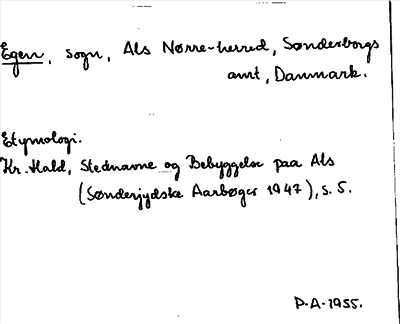 Egen, sogn, Als Nørre-herred, Sønderborgs
amt, Danmark.
Etymologi.
Kr. Hald, Stednavne og Bebyggelse paa Als
(Sønderjydske Aarbøger 1947), s. 5.
P.A. 1955.